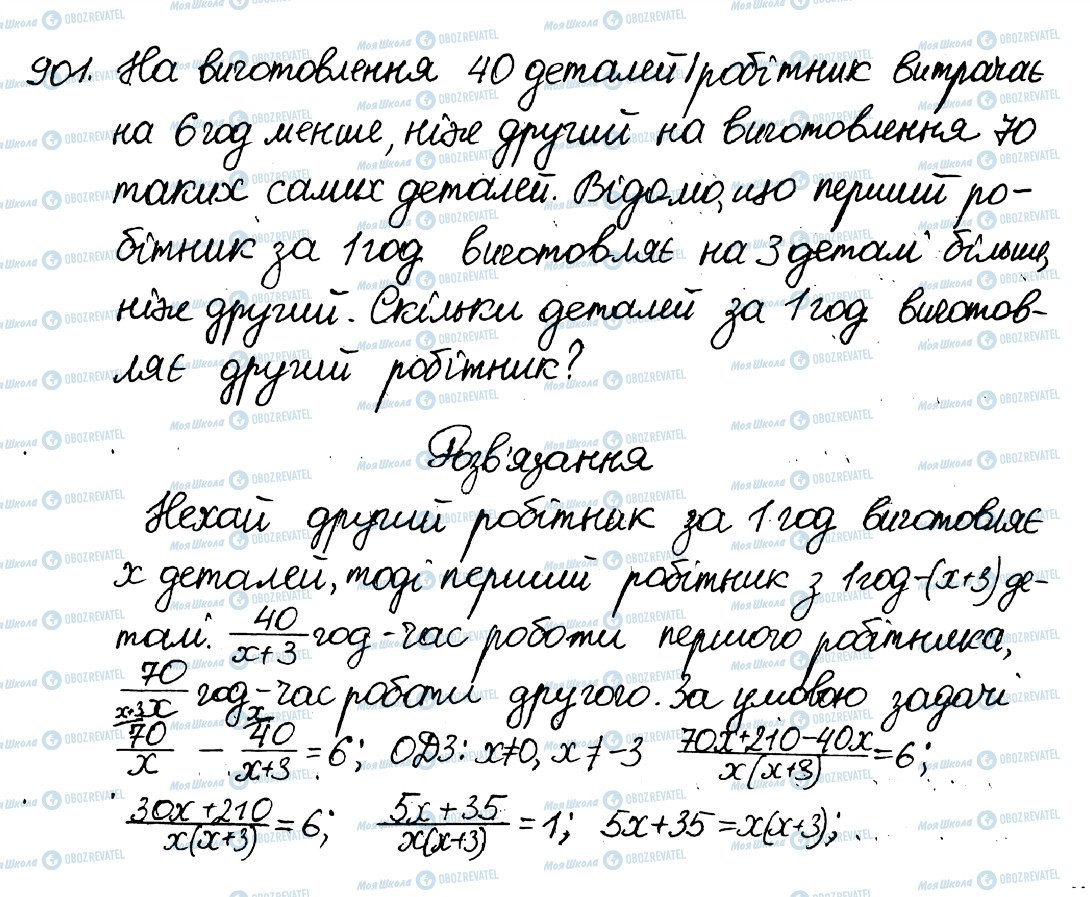 901. На виготовлення 40 деталей I робітник витрачає
на 6 год менше, ніж другий на виготовлення 70
таких самих деталей. Відомо, що перший ро-
бітник за 1 год виготовляє на 3 деталі більше,
ніж другий. Скільки деталей за 1 год виготов-
ляє другий робітник?
Розв'язання
Нехай другий робітник за 1 год виготовляє
x деталей, тоді перший робітник з 1 год - (x+3) де-
талі. 40/(x+3) год - час роботи першого робітника,
70/x год - час роботи другого. За умовою задачі
70/x (x+3) - 40/(x+3) (x) = 6; ОДЗ: x≠0, x≠-3 (70x+210-40x)/(x(x+3)) = 6;
(30x+210)/(x(x+3)) = 6; (5x+35)/(x(x+3)) = 1; 5x+35 = x(x+3);